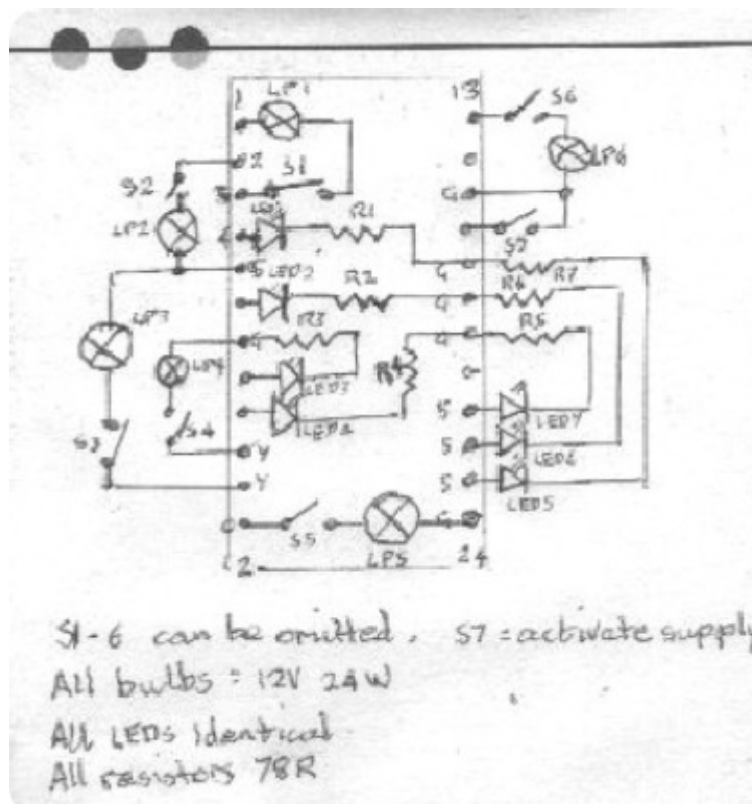 1 LP1 13 S6
2 S1 LP6
S2 3 G
LP2 4 LED1 R1 S7
5 LED2 G R7
R2 G R6
LP3 G R3 G R5
LP4 LED3 R4
LED4 S LED7
S3 S4 Y S LED6
Y S LED5
S5 LP5 G
12 24
S1-6 can be omitted. S7 = activate supply
All bulbs = 12V 24W
All LEDs identical
All resistors 78R